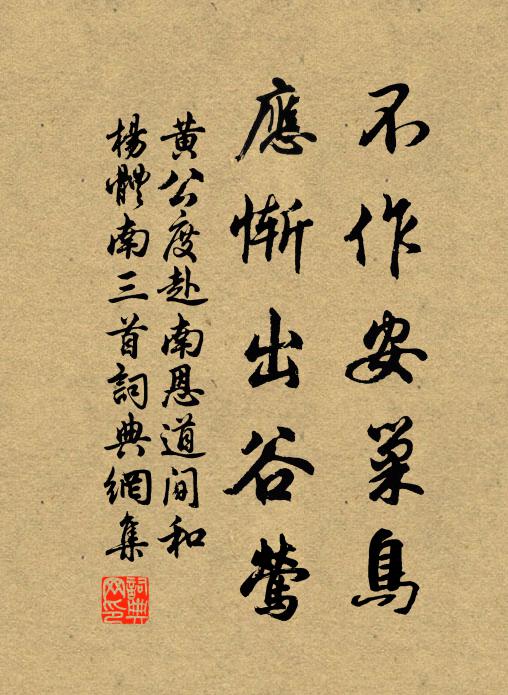 不作安巢鳥
應慚出谷鶯
黃公度赴南恩道間和
楊體南三首詞典網集
詞典網印